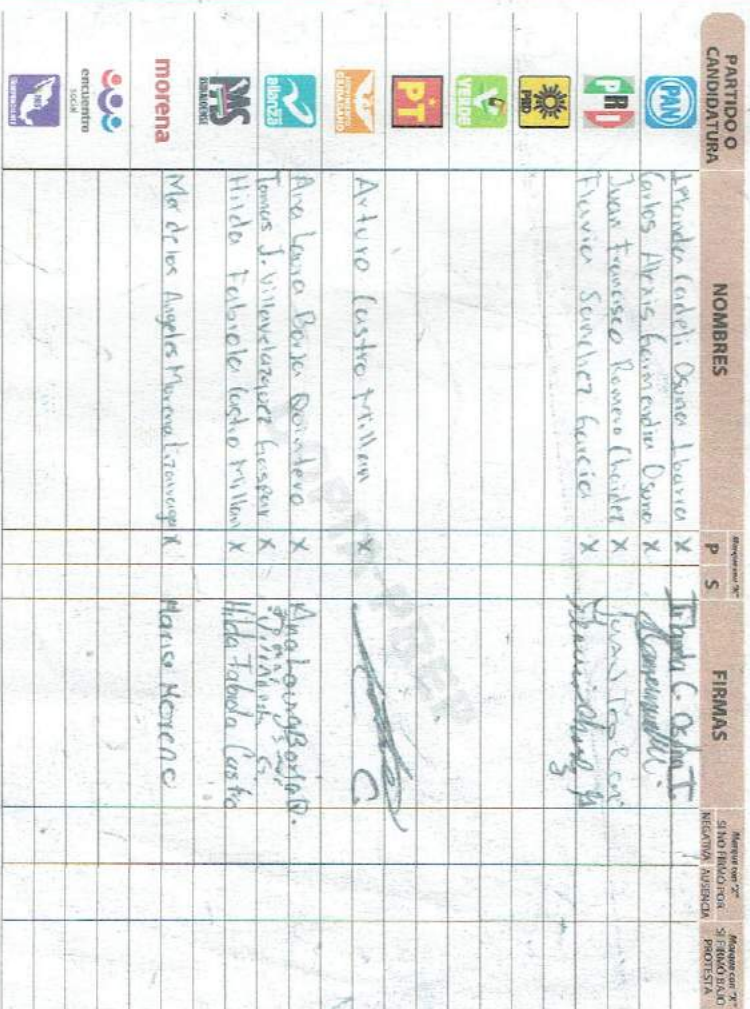 PARTIDO O CANDIDATURA
NOMBRES
Marque con "X"
P S
FIRMAS
Marque con "X" SI NO FIRMÓ POR
NEGATIVA AUSENCIA
Marque con "X" SI FIRMÓ BAJO PROTESTA
PAN
Osuna Ibarra X
Carlos Alexis Osuna X
PRI
Juan Francisco Romero Chaidez X
Flavia Sanchez Garcia X
PRD
VERDE
PT
MOVIMIENTO CIUDADANO
Arturo Castro Millan X
C.
alianza
Ana Laura Borja Quintero X Ana Laura Borja Q.
Tomas J. Villavelazquez Gaspar X
PAIS
SINALOENSE
Hilda Fabiola Castro Millan X Hilda Fabiola Castro
morena
Mar de los Angeles Moreno Lizarraga X Moreno
encuentro social
INDEPENDIENTE
COPIA-PREP